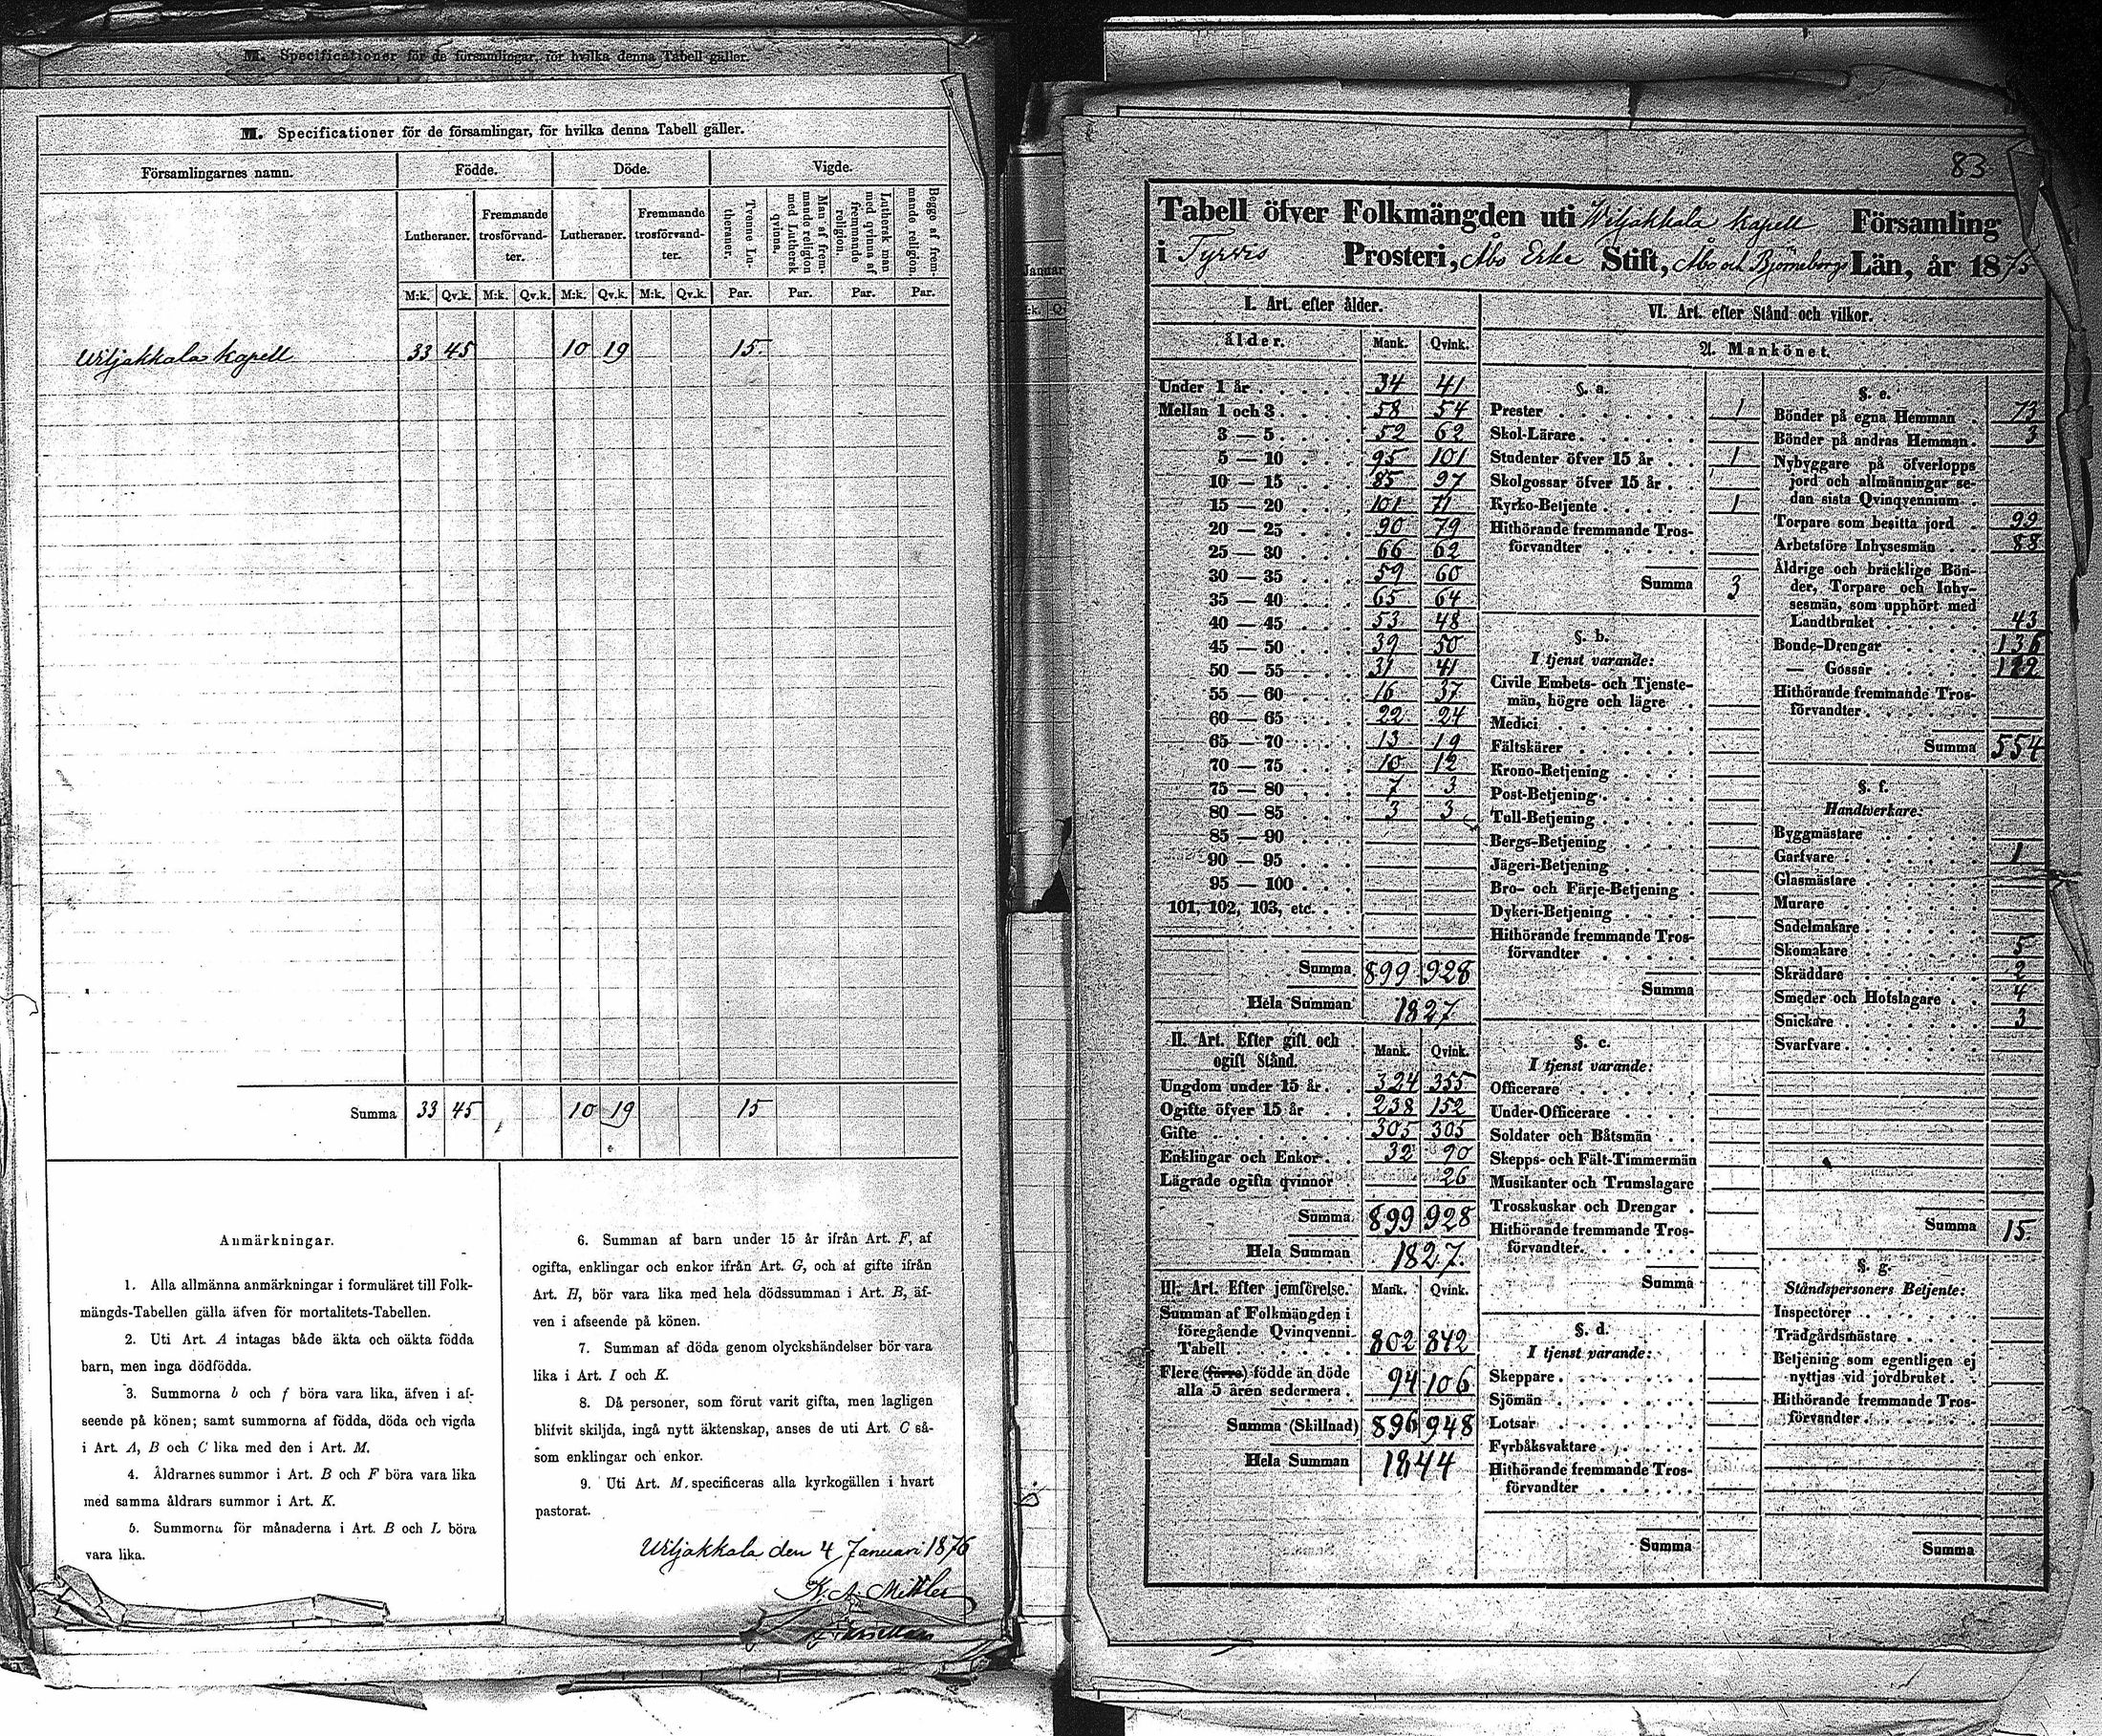 M. Specificationer för de församlingar, för hvilka denna Tabell gäller.
M. Specificationer för de församlingar, för hvilka denna Tabell gäller.
Församlingarnes namn. Födde. Döde. Vigde.
Lutheraner. Fremmande trosförvandter. Lutheraner. Fremmande trosförvandter. Tvenne Lutheraner. Man af fremmande religion med Luthersk qvinna. Luthersk man med qvinna af fremmande religion. Begge af fremmande religion.
M:k. Qv.k. M:k. Qv.k. M:k. Qv.k. M:k. Qv.k. Par. Par. Par. Par.
Wiljakkala Kapell 33 45 10 19 15.
Summa 33 45 10 19 15
Anmärkningar.
1. Alla allmänna anmärkningar i formuläret till Folk-
mängds-Tabellen gälla äfven för mortalitets-Tabellen.
2. Uti Art. A intagas både äkta och oäkta födda
barn, men inga dödfödda.
3. Summorna b och f böra vara lika, äfven i af-
seende på könen; samt summorna af födda, döda och vigda
i Art. A, B och C lika med den i Art. M.
4. Åldrarnes summor i Art. B och F böra vara lika
med samma åldrars summor i Art. K.
5. Summorna för månaderna i Art. B och L böra
vara lika.
6. Summan af barn under 15 år ifrån Art. F, af
ogifta, enklingar och enkor ifrån Art. G, och af gifte ifrån
Art. H, bör vara lika med hela dödssumman i Art. B, äf-
ven i afseende på könen.
7. Summan af döda genom olyckshändelser bör vara
lika i Art. I och K.
8. Då personer, som förut varit gifta, men lagligen
blifvit skiljda, ingå nytt äktenskap, anses de uti Art. C så-
som enklingar och enkor.
9. Uti Art. M. specificeras alla kyrkogällen i hvart
pastorat.
Wiljakkala den 4 Januari 1876
K. A. Mittler
83
Tabell öfver Folkmängden uti Wiljakkala Kapell Församling
i Tyrvis Prosteri, Åbo Erke Stift, Åbo och Björneborgs Län, år 1875
I. Art. efter ålder.
ålder. Mank. Qvink.
Under 1 år 34 41
Mellan 1 och 3 58 54
3 — 5 52 62
5 — 10 95 101
10 — 15 85 97
15 — 20 101 71
20 — 25 90 79
25 — 30 66 62
30 — 35 59 60
35 — 40 65 64
40 — 45 53 48
45 — 50 39 50
50 — 55 31 41
55 — 60 16 37
60 — 65 22 24
65 — 70 13 19
70 — 75 10 12
75 — 80 7 3
80 — 85 3 3
85 — 90
90 — 95
95 — 100
101, 102, 103, etc.
Summa 899 928
Hela Summan 1827
II. Art. Efter gift och
ogift Stånd. Mank. Qvink.
Ungdom under 15 år 324 355
Ogifte öfver 15 år 238 152
Gifte 305 305
Enklingar och Enkor 32 90
Lägrade ogifta qvinnor 26
Summa 899 928
Hela Summan 1827.
III. Art. Efter jemförelse. Mank. Qvink.
Summan af Folkmängden i
föregående Qvinqvenni
Tabell 802 842
Flere (färre) födde än döde
alla 5 åren sedermera 94 106
Summa (Skillnad) 896 948
Hela Summan 1844
VI. Art. efter Stånd och vilkor.
A. Mankönet.
§. a.
Prester 1
Skol-Lärare
Studenter öfver 15 år 1
Skolgossar öfver 15 år
Kyrko-Betjente 1
Hithörande fremmande Tros-
förvandter
Summa 3
§. b.
I tjenst varande:
Civile Embets- och Tjenste-
män, högre och lägre
Medici
Fältskärer
Krono-Betjening
Post-Betjening
Tull-Betjening
Bergs-Betjening
Jägeri-Betjening
Bro- och Färje-Betjening
Dykeri-Betjening
Hithörande fremmande Tros-
förvandter
Summa
§. c.
I tjenst varande:
Officerare
Under-Officerare
Soldater och Båtsmän
Skepps- och Fält-Timmermän
Musikanter och Trumslagare
Trosskuskar och Drengar
Hithörande fremmande Tros-
förvandter
Summa
§. d.
I tjenst varande:
Skeppare
Sjömän
Lotsar
Fyrbåksvaktare
Hithörande fremmande Tros-
förvandter
Summa
§. e.
Bönder på egna Hemman 73
Bönder på andras Hemman 3
Nybyggare på öfverlopps
jord och allmänningar se-
dan sista Qvinqvennium
Torpare som besitta jord 99
Arbetsföre Inhysesmän 88
Åldrige och bräcklige Bön-
der, Torpare och Inhy-
sesmän, som upphört med
Landtbruket 43
Bonde-Drengar 136
— Gossar
Hithörande fremmande Tros-
förvandter
Summa 554
§. f.
Handtverkare:
Byggmästare
Garfvare 1
Glasmästare
Murare
Sadelmakare
Skomakare 5
Skräddare 2
Smeder och Hofslagare 4
Snickare 3
Svarfvare
Summa 15.
§. g.
Ståndspersoners Betjente:
Inspectörer
Trädgårdsmästare
Betjening som egentligen ej
nyttjas vid jordbruket
Hithörande fremmande Tros-
förvandter
Summa